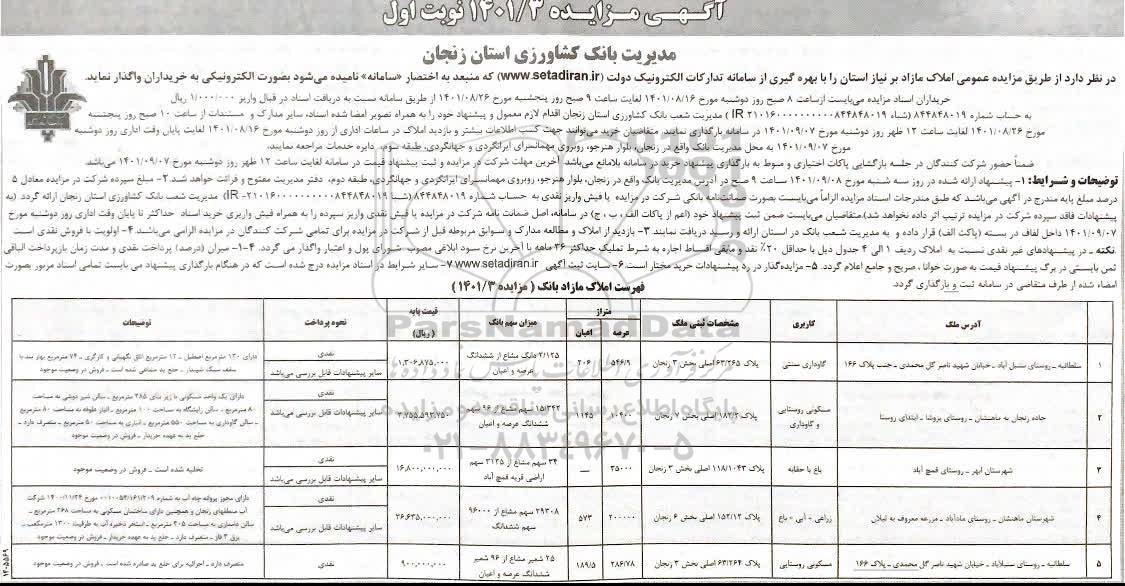 آگهی مزایده ۱۴۰۱/۳ نوبت اول
مدیریت بانک کشاورزی استان زنجان
در نظر دارد از طریق مزایده عمومی املاک مازاد بر نیاز استان را با بهره گیری از سامانه تدارکات الکترونیک دولت (www.setadiran.ir) که منبعد به اختصار «سامانه» نامیده می‌شود بصورت الکترونیکی به خریداران واگذار نماید.
خریداران اسناد مزایده می‌بایست ازساعت ۸ صبح روز دوشنبه مورخ ۱۴۰۱/۰۸/۱۶ لغایت ساعت ۹ صبح روز پنجشنبه مورخ ۱۴۰۱/۰۸/۲۶ از طریق سامانه نسبت به دریافت اسناد در قبال واریز ۱/۰۰۰/۰۰۰ ریال
به حساب شماره ۸۴۴۸۴۸۰۱۹ مدیریت شعب بانک کشاورزی استان زنجان اقدام لازم معمول و پیشنهاد خود را به همراه تصویر امضا شده اسناد، سایر مدارک و مستندات از ساعت ۱۰ صبح روز پنجشنبه
مورخ ۱۴۰۱/۰۸/۲۶ لغایت ساعت ۱۲ ظهر روز دوشنبه مورخ ۱۴۰۱/۰۹/۰۷ در سامانه بارگذاری نمایند. متقاضیان خرید می‌توانند جهت کسب اطلاعات بیشتر و بازدید املاک در ساعات اداری از روز دوشنبه مورخ ۱۴۰۱/۰۸/۱۶ لغایت پایان وقت اداری روز دوشنبه
مورخ ۱۴۰۱/۰۹/۰۷ به محل مدیریت بانک واقع در زنجان، بلوار هنرجو، روبروی مهمانسرای ایرانگردی و جهانگردی، طبقه سوم، دایره خدمات مراجعه نمایند.
ضمناً حضور شرکت کنندگان در جلسه بازگشایی پاکات اختیاری و منوط به بارگذاری پیشنهاد خرید در سامانه بلامانع می‌باشد. آخرین مهلت شرکت در مزایده و ثبت پیشنهاد قیمت در سامانه لغایت ساعت ۱۲ ظهر روز دوشنبه مورخ ۱۴۰۱/۰۹/۰۷ می‌باشد.
توضیحات و شرایط: ۱- پیشنهاد ارائه شده در روز سه شنبه مورخ ۱۴۰۱/۰۹/۰۸ ساعت ۹ صبح در آدرس مدیریت بانک واقع در زنجان، بلوار هنرجو، روبروی مهمانسرای ایرانگردی و جهانگردی، طبقه دوم، دفتر مدیریت مفتوح و قرائت خواهد شد. ۲- مبلغ سپرده شرکت در مزایده معادل ۵
درصد مبلغ پایه مندرج در آگهی می‌باشد که طبق مندرجات اسناد مزایده الزاماً می‌بایست بصورت ضمانتنامه بانکی شرکت در مزایده یا فیش واریز نقدی به حساب شماره ۸۴۴۸۴۸۰۱۹ مدیریت شعب بانک کشاورزی استان زنجان ارائه گردد. (به
پیشنهادات فاقد سپرده شرکت در مزایده ترتیب اثر داده نخواهد شد).متقاضیان می‌بایست ضمن ثبت پیشنهاد خود (اعم از پاکات الف ، ب ، ج) در سامانه، اصل ضمانت نامه شرکت در مزایده یا فیش نقدی واریز سپرده را به همراه فیش واریزی خرید اسناد حداکثر تا پایان وقت اداری روز دوشنبه مورخ
۱۴۰۱/۰۹/۰۷ داخل لفاف در بسته (پاکت الف) قرار داده و به مدیریت شعب بانک در استان ارائه و رسید دریافت نمایند. ۳- بازدید از املاک و مطالعه مدارک و سوابق مربوطه قبل از شرکت در مزایده برای تمامی شرکت کنندگان در مزایده الزامی می‌باشد. ۴- اولویت با فروش نقدی است
نکته ـ در پیشنهادهای غیر نقدی نسبت به املاک ردیف ۱ الی ۴ جدول ذیل با حداقل ۲۰٪ نقد و مابقی اقساط اجاره به شرط تملیک حداکثر ۳۶ ماهه با آخرین نرخ سود ابلاغی مصوب شورای پول و اعتبار واگذار می گردد. ۴-۱- میزان (درصد) پرداخت نقدی و مدت زمان بازپرداخت الباقی
ثمن بایستی در برگ پیشنهاد قیمت به صورت خوانا ، صریح و جامع اعلام گردد. ۵- مزایده‌گذار در رد پیشنهادات خرید مختار است. ۶- سایت ثبت آگهی www.setadiran.ir ۷- سایر شرایط در اسناد مزایده درج شده است که در هنگام بارگذاری پیشنهاد می بایست تمامی اسناد مزبور بصورت
امضاء شده از طرف متقاضی در سامانه ثبت و بارگذاری گردد.
فهرست املاک مازاد بانک ( مزایده ۱۴۰۱/۳ )
آدرس ملک کاربری مشخصات ثبتی ملک متراژ عرصه اعیان میزان سهم بانک قیمت پایه (ریال) نحوه پرداخت توضیحات
۱ سلطانیه ـ روستای سنبل آباد ـ خیابان شهید ناصر گل محمدی ـ جنب پلاک ۱۶۶ گاوداری سنتی پلاک ۶۳/۲۶۵ اصلی بخش ۳ زنجان ۵۴۶/۹ ۲۰۶ ۲/۱۲۵ دانگ مشاع از ششدانگ عرصه و اعیان ۱،۳۰۶،۸۷۵،۰۰۰ نقدی سایر پیشنهادات قابل بررسی می‌باشد
دارای ۱۳۰ مترمربع اصطبل ـ ۱۲ مترمربع اتاق نگهبانی و کارگری ـ ۷۴ مترمربع بهار بند با
۲ جاده زنجان به ماهنشان ـ روستای پروشا ـ ابتدای روستا مسکونی روستایی و گاوداری پلاک ۱۸۲/۲ اصلی بخش ۷ زنجان ۱۰۴۰۰ ۱۱۴۵ ۱۵/۳۴۲ سهم مشاع از ۹۶ سهم ششدانگ عرصه و اعیان ۳،۷۵۵،۵۹۳،۷۵۰ نقدی سایر پیشنهادات قابل بررسی می‌باشد
۳ شهرستان ابهر ـ روستای قمچ آباد باغ با حقابه پلاک ۱۱۸/۱۰۴۳ اصلی بخش ۳ زنجان ۳۵۰۰۰ — ۳۴ سهم مشاع از ۳۱۲۵ سهم اراضی قریه قمچ آباد ۱۶،۸۰۰،۰۰۰،۰۰۰ نقدی سایر پیشنهادات قابل بررسی می‌باشد تخلیه شده است ـ فروش در وضعیت موجود
۴ شهرستان ماهنشان ـ روستای مادآباد ـ مزرعه معروف به لیلان زراعی - آبی - باغ پلاک ۱۵۲/۱۲ اصلی بخش ۶ زنجان ۲۰۰۰۰۰ ۵۷۳ ۲۹۳۰۸ سهم مشاع از ۹۶۰۰۰ سهم ششدانگ ۳۶،۶۳۵،۰۰۰،۰۰۰ نقدی سایر پیشنهادات قابل بررسی می‌باشد
۵ سلطانیه ـ روستای سنبل‌آباد ـ خیابان شهید ناصر گل محمدی ـ پلاک ۱۶۶ مسکونی روستایی پلاک ۶۳/۲۶۴ اصلی بخش ۳ زنجان ۲۸۶/۷۸ ۱۸۹/۵ ۲۵ شعیر مشاع از ۹۶ شعیر ششدانگ عرصه و اعیان ۹۰۰،۰۰۰،۰۰۰ نقدی متصرف دارد ـ اجرائیه برای خلع ید صادره شده است ـ فروش در وضعیت موجود
ParsNamadData
پایگاه اطلاع رسانی مناقصه و مزایده
۰۲۱-۸۸۳۴۹۶۷۰-۵